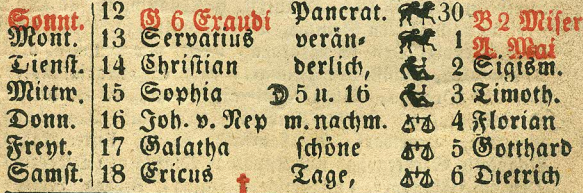 Sonnt. 12 G 6 Exaudi Pancrat. 30 B 2 Miser
Mont. 13 Servatius verän- 1 A. Mai
Dienst. 14 Christian derlich, 2 Sigism.
Mittw. 15 Sophia 5 u. 16 3 Timoth.
Donn. 16 Joh. v. Nep m. nachm. 4 Florian
Freyt. 17 Galatha schöne 5 Gotthard
Samst. 18 Ericus Tage, 6 Dietrich